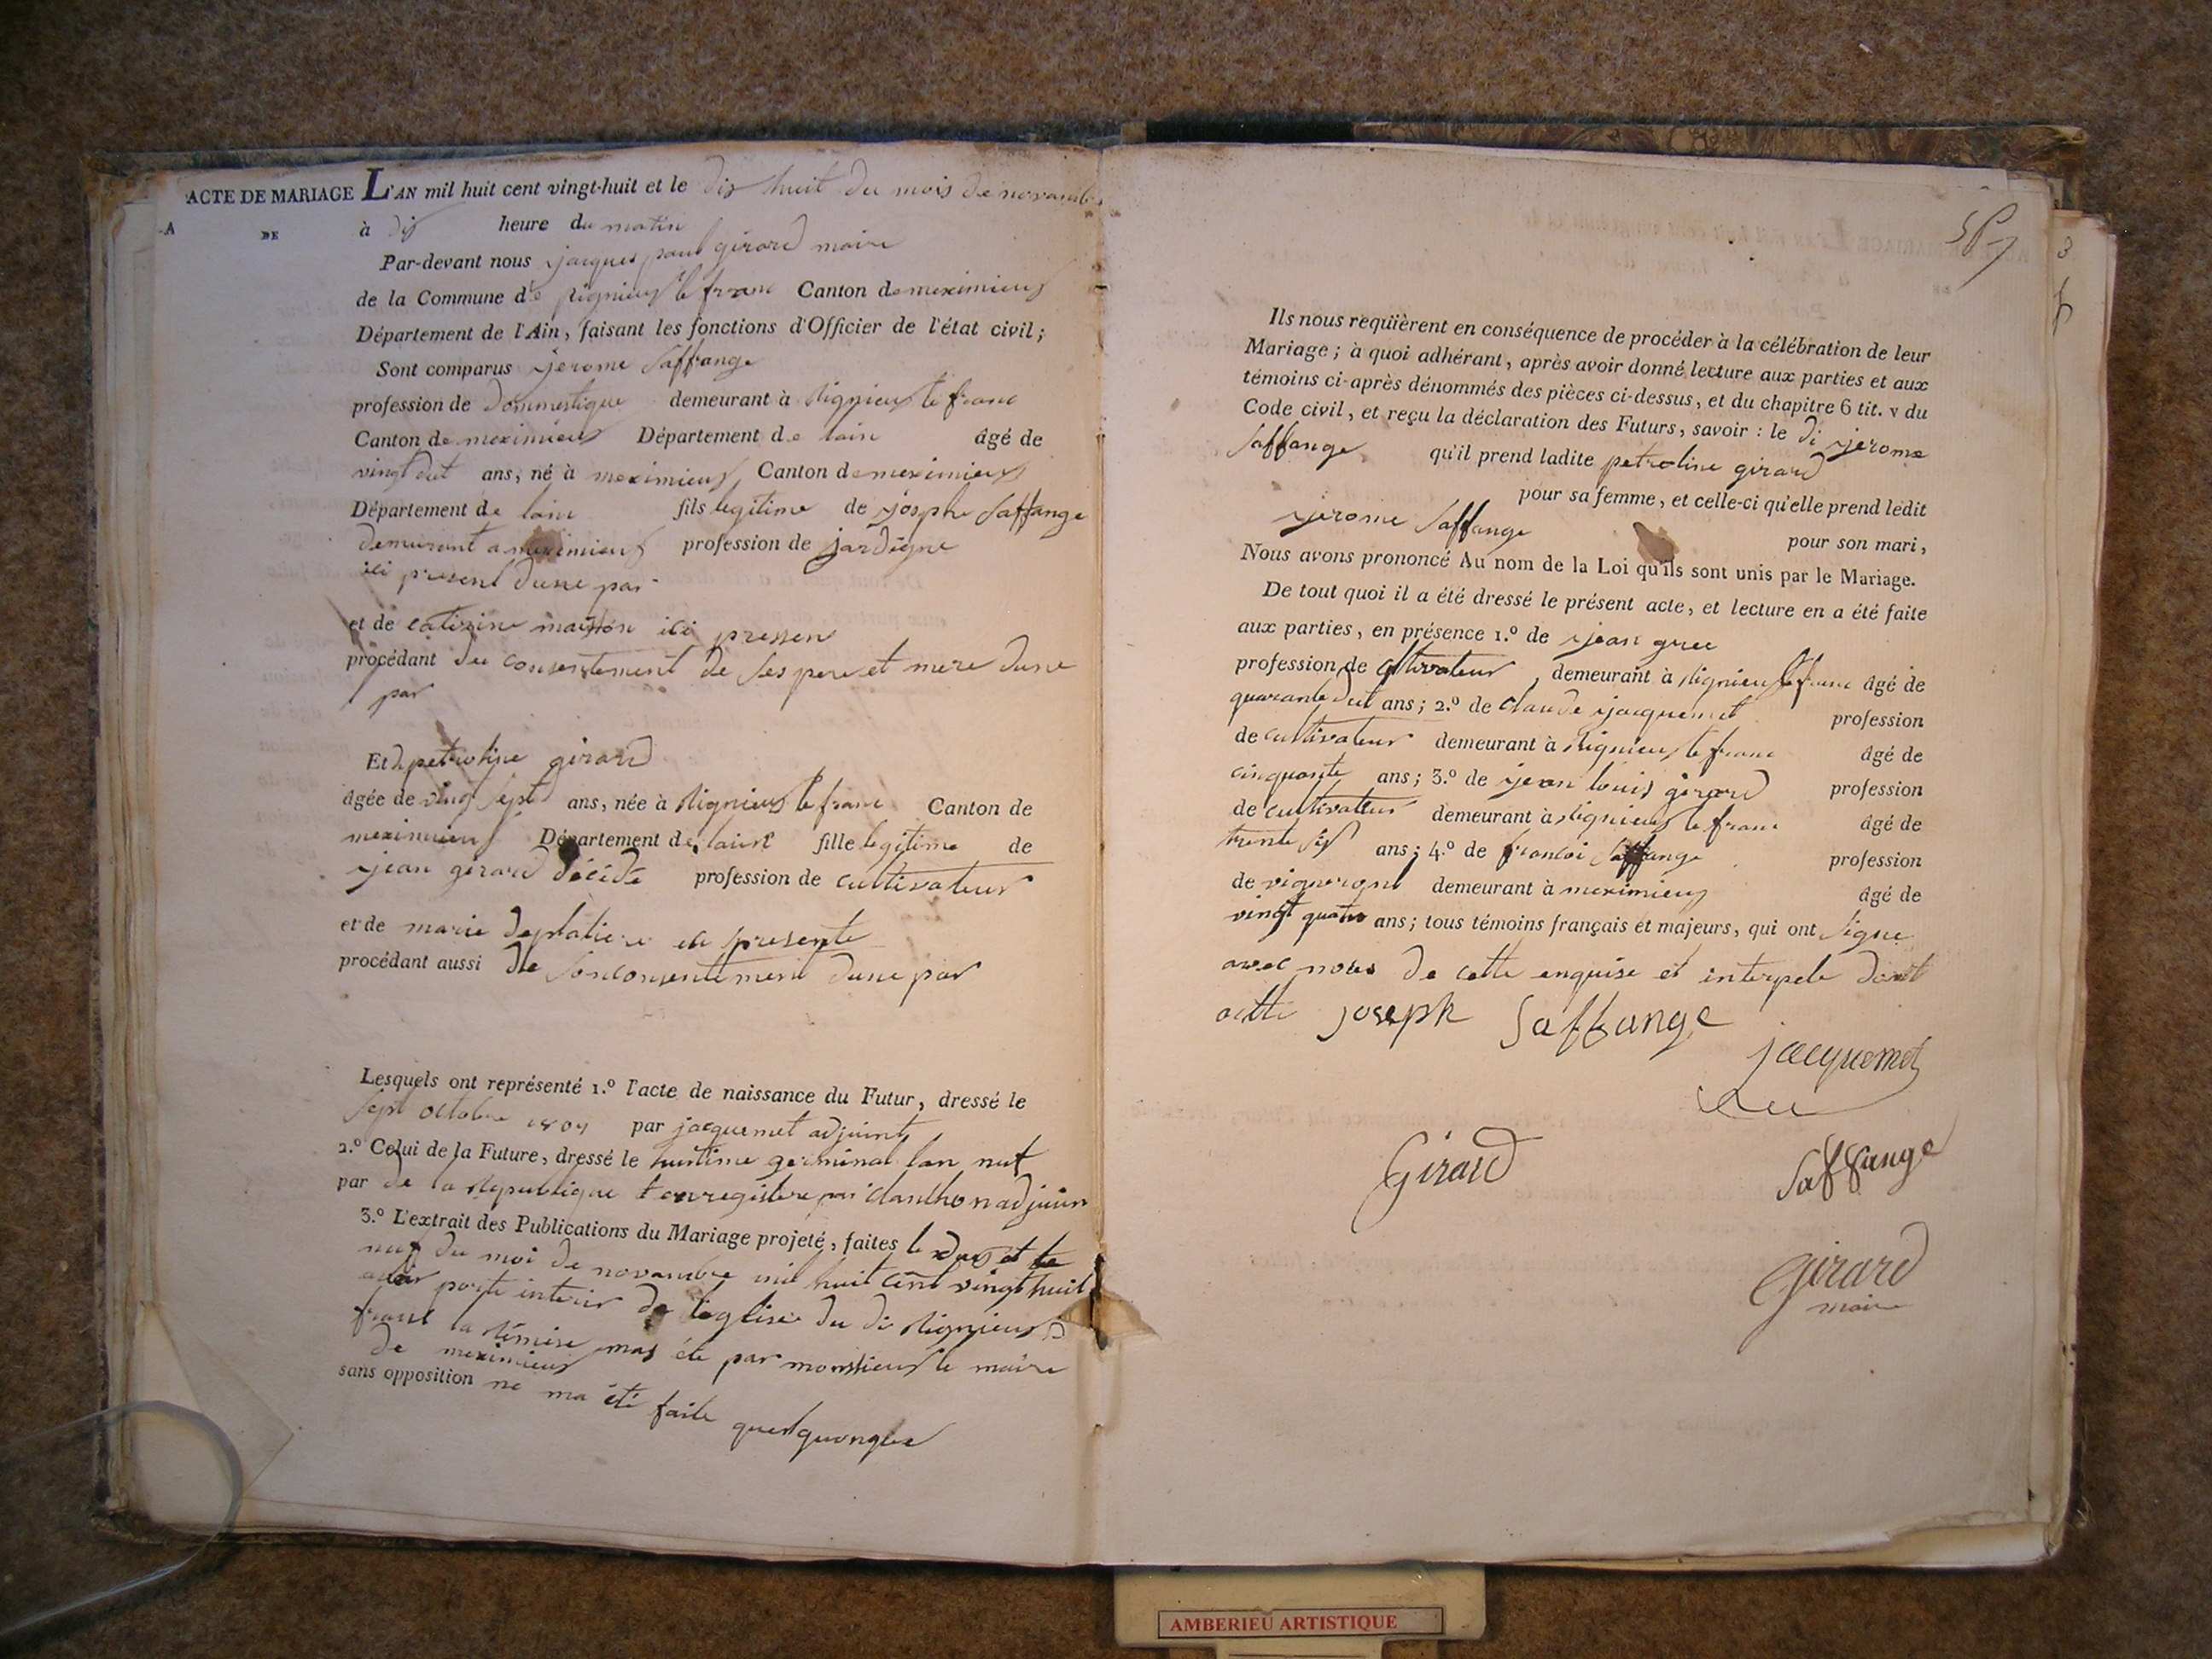 ACTE DE MARIAGE L'AN mil huit cent vingt-huit et le dix huit du mois de novambre
A DE à dix heure du matin
Par-devant nous jacques paul girard maire
de la Commune de rignieux le franc Canton de meximieux
Département de l'Ain, faisant les fonctions d'Officier de l'état civil;
Sont comparus jerome saffange
profession de dommestique demeurant à rignieux le franc
Canton de meximieux Département de lain âgé de
vingt ans, né à meximieux, Canton de meximieux
Département de lain fils legitime de josphe saffange
demurant a meximieux profession de jardigne
ici present dune par
et de catirine maison ici pressen
procédant du consentement de ses pere et mere dune
par
Et petroline girard
âgée de vingt sept ans, née à rignieux le franc Canton de
meximieux Département de lain fille legitime de
jean girard décédé profession de cultivateur
et de marie deplatiere ici presente
procédant aussi de son consentement dune par
Lesquels ont représenté 1.º l'acte de naissance du Futur, dressé le
sept octobre par jacquemet adjuint
2.º Celui de la Future, dressé le huitime germinal lan nuf
par de la republique enregistre par adjuin
3.º L'extrait des Publications du Mariage projeté, faites le deux et le
nuf du moi de novambre mil huit cent vingt huit
porte de léglise du di rignieux
franc la remise mas éte par monssieur le maire
de meximieux
sans opposition ne ma été faite quelquonque
Ils nous requièrent en conséquence de procéder à la célébration de leur
Mariage; à quoi adhérant, après avoir donné lecture aux parties et aux
témoins ci-après dénommés des pièces ci-dessus, et du chapitre 6 tit. v du
Code civil, et reçu la déclaration des Futurs, savoir: le di jerome
saffange qu'il prend ladite petroline girard
pour sa femme, et celle-ci qu'elle prend ledit
jerome saffange pour son mari,
Nous avons prononcé Au nom de la Loi qu'ils sont unis par le Mariage.
De tout quoi il a été dressé le présent acte, et lecture en a été faite
aux parties, en présence 1.º de jean gree
profession de cltivateur, demeurant à rignieux le franc âgé de
quarante ans; 2.º de claude jacquemet profession
de cultivateur demeurant à rignieux le franc âgé de
cinquante ans; 3.º de jean louis girard profession
de cultivateur demeurant à rignieux le franc âgé de
trente six ans; 4.º de francoi saffange profession
de vigneront demeurant à meximieux âgé de
vingt quatre ans; tous témoins français et majeurs, qui ont signe
avec nous de cette enquise et interpele dont
acte joseph saffange
jacquemet
Girard saffange
girard
maire
AMBERIEU ARTISTIQUE